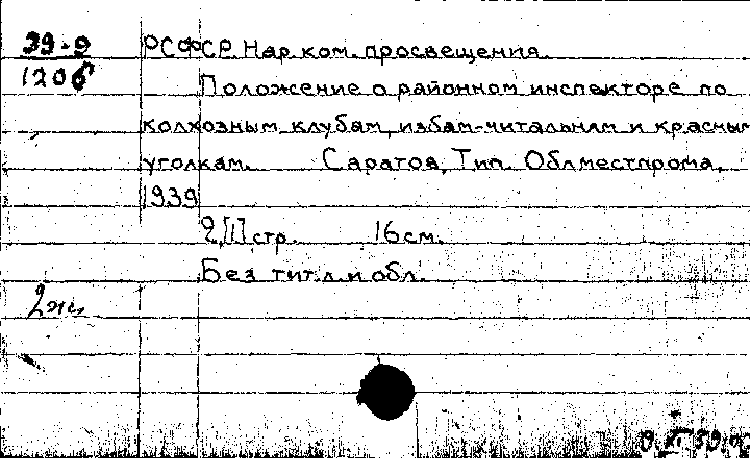 39-9
1206
РСФСР. Нар. ком. просвещения.
Положение о районном инспекторе по
колхозным клубам, избам-читальням и красным
уголкам. Саратов, Тип. Облместпрома,
1939
2,[1] стр. 16 см.
Без тит. л. и обл.
2 эк.